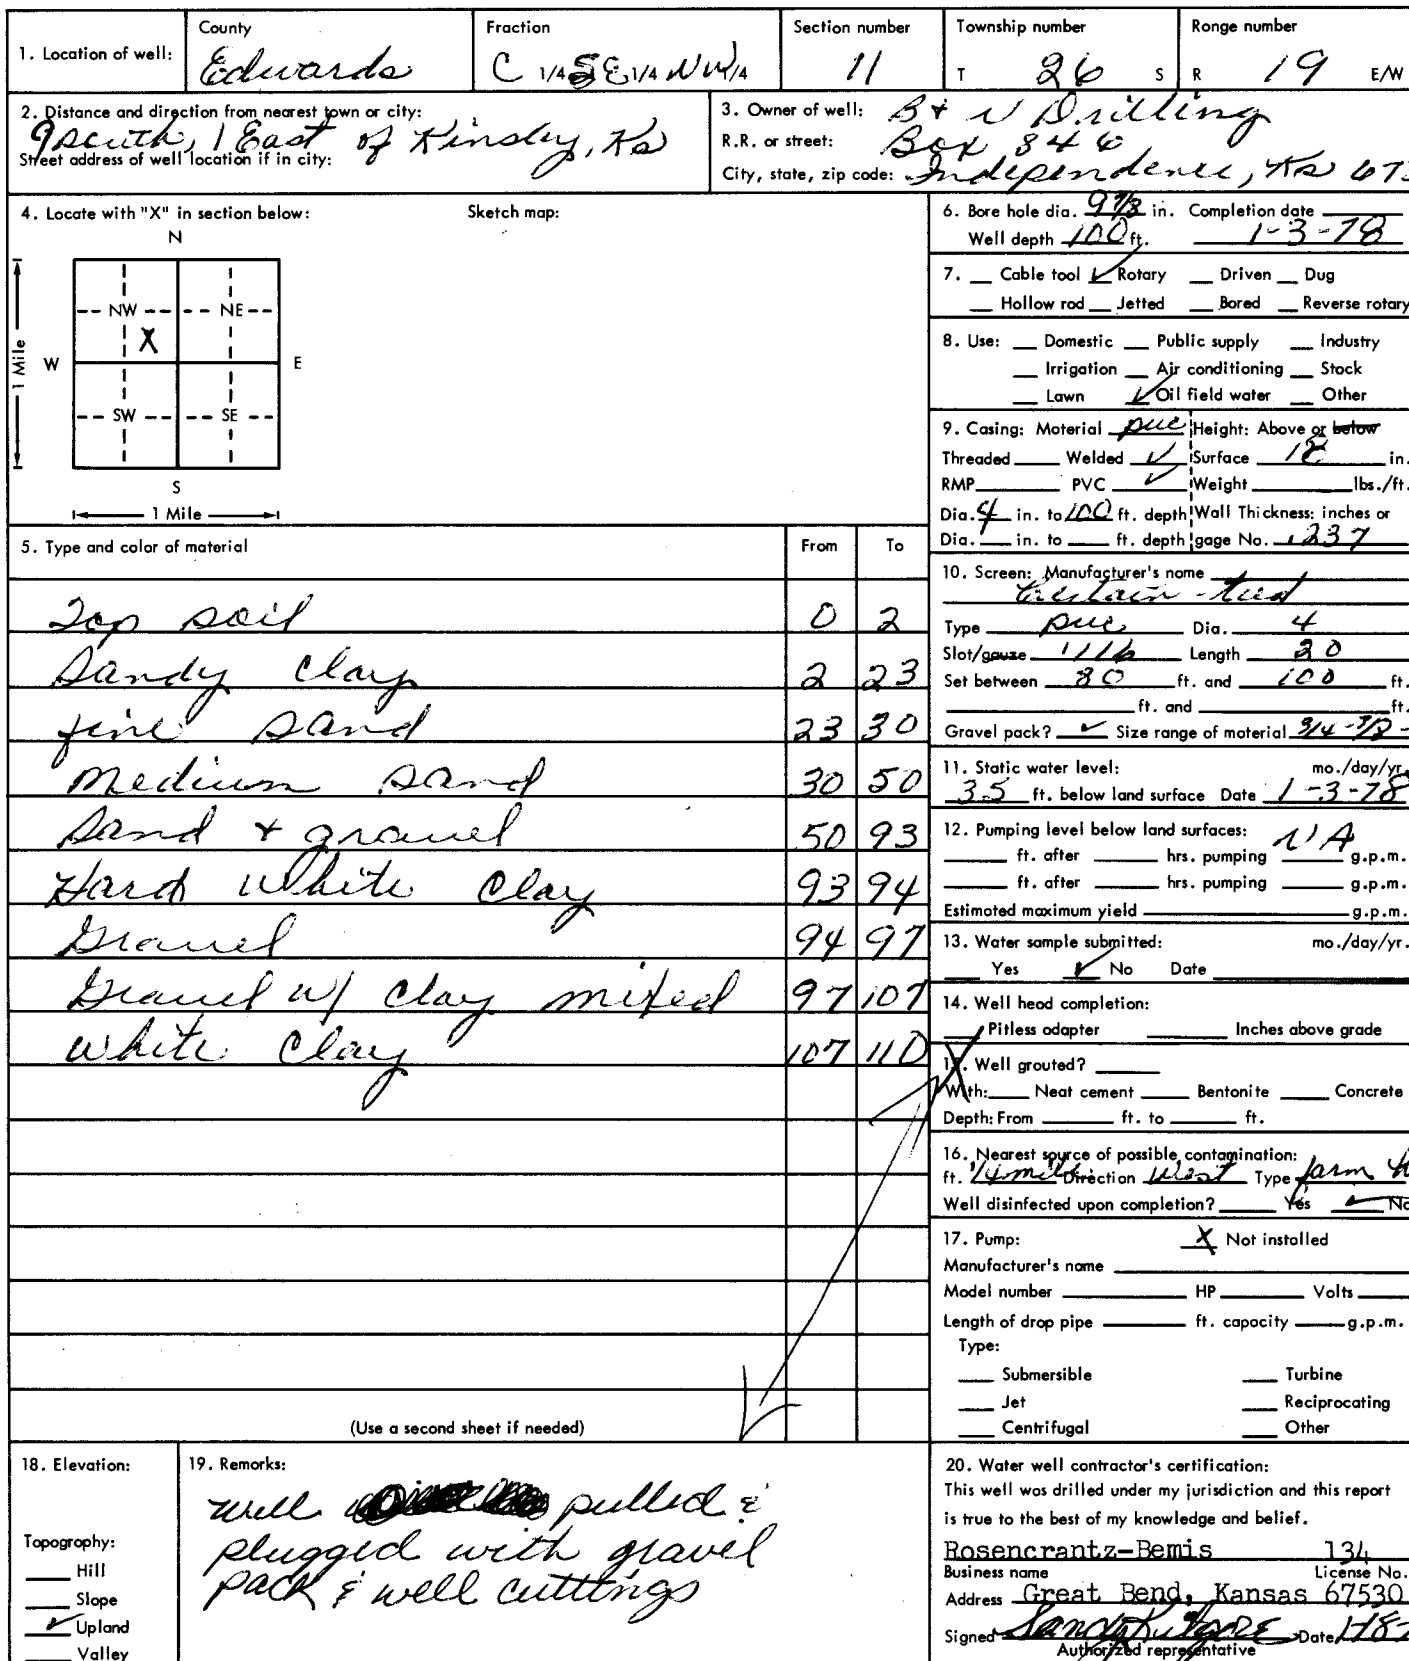 1. Location of well:
County
Edwards
Fraction
C 1/4 SE 1/4 NW 1/4
Section number
11
Township number
T 26 S
Range number
R 19 E/W
2. Distance and direction from nearest town or city:
9 south, 1 East of Kinsley, Ks
Street address of well location if in city:
3. Owner of well: B + N Drilling
R.R. or street: Box 846
City, state, zip code: Independence, Ks 673
4. Locate with "X" in section below:
Sketch map:
N
NW NE
X
W E
1 Mile
SW SE
S
1 Mile
5. Type and color of material From To
Top soil 0 2
Sandy clay 2 23
fine sand 23 30
Medium sand 30 50
Sand + gravel 50 93
Hard White Clay 93 94
Gravel 94 97
Gravel w/ clay mixed 97 107
White Clay 107 110
(Use a second sheet if needed)
6. Bore hole dia. 9 7/8 in. Completion date
Well depth 100 ft. 1-3-78
7. Cable tool ✓ Rotary Driven Dug
Hollow rod Jetted Bored Reverse rotary
8. Use: Domestic Public supply Industry
Irrigation Air conditioning Stock
Lawn ✓ Oil field water Other
9. Casing: Material pvc Height: Above or below
Threaded Welded ✓ Surface 18 in.
RMP PVC ✓ Weight lbs./ft.
Dia. 4 in. to 100 ft. depth Wall Thickness: inches or
Dia. in. to ft. depth gage No. .237
10. Screen: Manufacturer's name
Certain-teed
Type pvc Dia. 4
Slot/gauze 1/16 Length 20
Set between 80 ft. and 100 ft.
ft. and ft.
Gravel pack? ✓ Size range of material 3/4 -
11. Static water level: mo./day/yr.
35 ft. below land surface Date 1-3-78
12. Pumping level below land surfaces: NA
ft. after hrs. pumping g.p.m.
ft. after hrs. pumping g.p.m.
Estimated maximum yield g.p.m.
13. Water sample submitted: mo./day/yr.
Yes ✓ No Date
14. Well head completion:
Pitless adapter Inches above grade
15. Well grouted?
With: Neat cement Bentonite Concrete
Depth: From ft. to ft.
16. Nearest source of possible contamination:
ft. 1/4 mile Direction West Type farm h
Well disinfected upon completion? Yes ✓ No
17. Pump: X Not installed
Manufacturer's name
Model number HP Volts
Length of drop pipe ft. capacity g.p.m.
Type:
Submersible Turbine
Jet Reciprocating
Centrifugal Other
18. Elevation:
Topography:
Hill
Slope
✓ Upland
Valley
19. Remarks:
well pulled &
plugged with gravel
pack & well cuttings
20. Water well contractor's certification:
This well was drilled under my jurisdiction and this report
is true to the best of my knowledge and belief.
Rosencrantz-Bemis 134
Business name License No.
Address Great Bend, Kansas 67530
Signed Date
Authorized representative